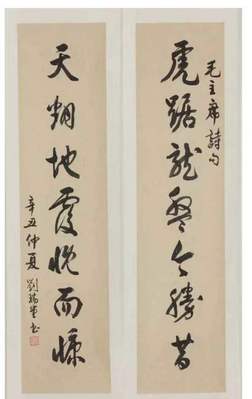 毛主席詩句
虎踞龍盤今勝昔
天翻地覆慨而慷
辛丑仲夏 劉書